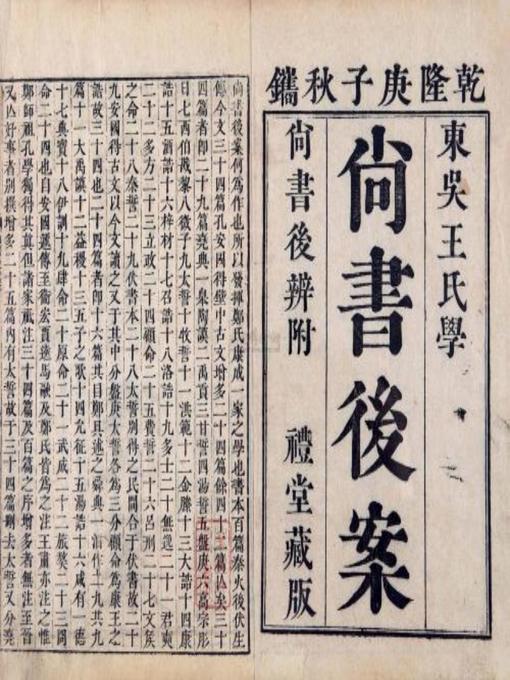 乾隆庚子秋鐫
東吳王氏學
尚書後案
尚書後辨附　禮堂藏版
尚書後案何為作也所以發揮鄭氏康成一家之學也書本百篇秦火後伏生
傳今文三十四篇孔安國得壁中古文增多二十四篇餘四十二篇亾矣三十
四篇者即二十九篇堯典一臯陶謨二禹貢三甘誓四湯誓五盤庚六高宗肜
日七西伯戡黎八微子九太誓十牧誓十一洪範十二金縢十三大誥十四康
誥十五酒誥十六梓材十七召誥十八洛誥十九多士二十無逸二十一君奭
二十二多方二十三立政二十四顧命二十五費誓二十六呂刑二十七文矦
之命二十八秦誓二十九伏書本二十八太誓別得之民間合于伏書故二十
九安國得古文以今文讀之又于其中分盤庚太誓各為三分顧命為康王之
誥故三十四也二十四篇者即十六篇其目鄭具述之舜典一汨作二九共九
篇十一大禹謨十二益稷十三五子之歌十四允征十五湯誥十六咸有一德
十七典寶十八伊訓十九肆命二十原命二十一武成二十二旅獒二十三冏
命二十四也自安國遞傳至衞宏賈逵馬融及鄭氏皆為之注王肅亦注之惟
鄭師祖孔學獨得其真但諸家祇注三十四篇及百篇之序增多者無注至晉
又亾好事者別撰增多二十五篇內有太誓故于三十四篇刪去太誓又分堯